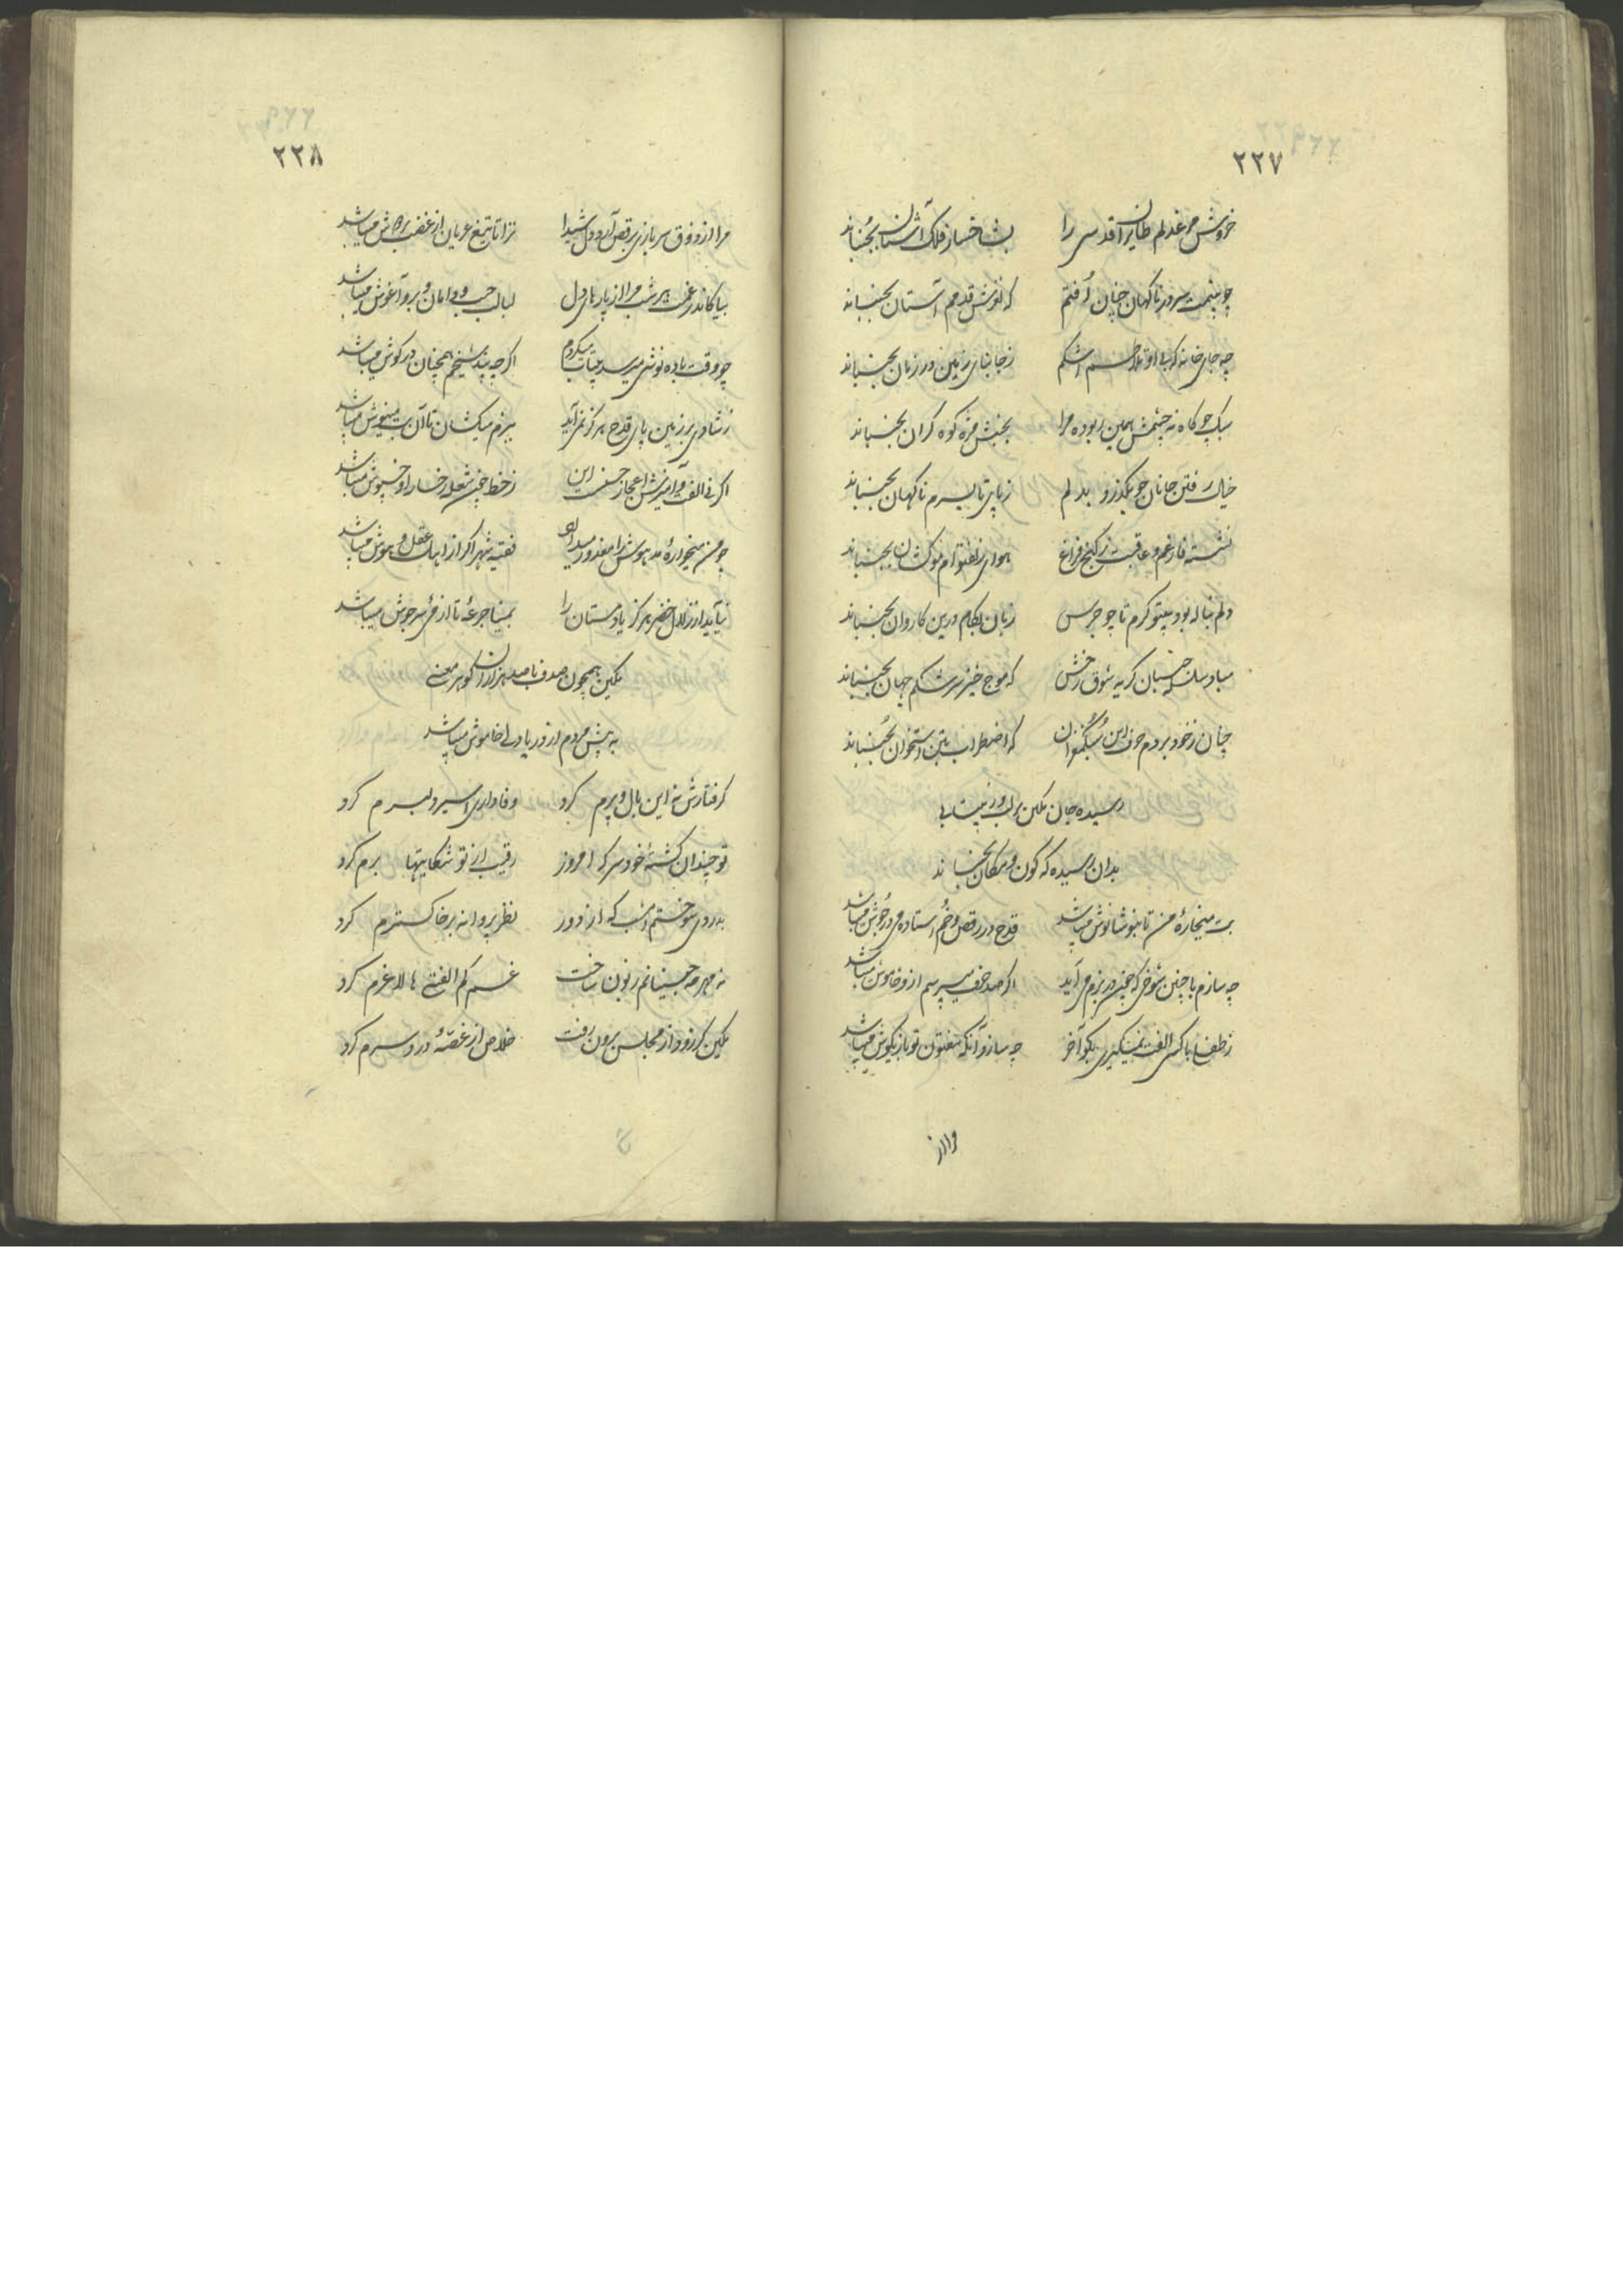 ۲۲۷
خروش مرغ دلم طایران قدسی را بشاخسار فلک آشیان بجنباند
چو بینمت سر ره ناکهان چنان افتم که لوزش قدمم آستان بجنباند
چه جای خانه که بی او تلاطم اشکم زجا بنای زمین در زمان بجنباند
سبک چو کاه نه چشمش همین ربوده مرا بجنبش مژه کوه کران بجنباند
خیال رفتن جانان چو بکذرد بدلم زپای تا بسرم ناکهان بجنباند
نشسته فارغم و عاقبت زکنج فراغ هوای زلف توام موکشان بجنباند
دلم بناله بود بیتو کرم تا چو جرس زبان بکام درین کاروان بجنباند
مباد سلسله جنبان کریه شوق رخش که موج خیز سرشکم جهان بجنباند
چنان زخود بردم حرف این که اضطراب بتن استخوان بجنباند
رسیده جان مکین بر لب و زبیتابی
بدان رسیده که کون و مکان بجنباند
بت میخاره من تا نوش میباشد قدح در رقص و خم استاده می در جوش میباشد
چه سازم با چنین شوخی که چون در بزم می آید اکر صد حرف میپرسم ازو خاموش میباشد
الفت نمیکیری بکو آخر چه سازد آنکه مفتون تو
و ااز
۲۲۸
مرا از ذوق سربازی برقص آرد دل شیدا ترا تا تیغ عریان از غضب بر دوش میباشد
بیا کاندر غمت هر شب مرا از پارهای دل لبالب جیب و دامان و بر و آغوش میباشد
چو وقت باده نوشی میرسد بیتاب میکردم اکرچه پند شیخم همچنان در کوش میباشد
زشادی بر زمین پای قدح هرکز نمی آید ببزم میکشان تا آن بت مینوش میباشد
اکر نی الفت و آمیزش اعجاز حسنست این زخط چون شعله رخسار او خسپوش میباشد
چو من میخواره مدهوش را معذور میدارد فقیه شهر اکر از اهل عقل و هوش میباشد
نیاید از زلال خضر هرکز یاد مستان را بمینا جرعه تا از می سرجوش میباشد
مکین همچون صدف با صد هزاران کوهر معنی
به پیش مردم از دریا دلی خاموش میباشد
کرفتارش نه این بال و پرم کرد وفاداری اسیر دلبرم کرد
تو چندان کشته خودسر که امروز رقیب از تو شکایتها برم کرد
بدردی سوختم امشب که از دور نظر پروانه بر خاکسترم کرد
نه مهر مه جبینانم زبون ساخت غم کم الفتی ها لاغرم کرد
مکین کرزود از مجلس برون رفت خلاص از غصه دردسرم کرد